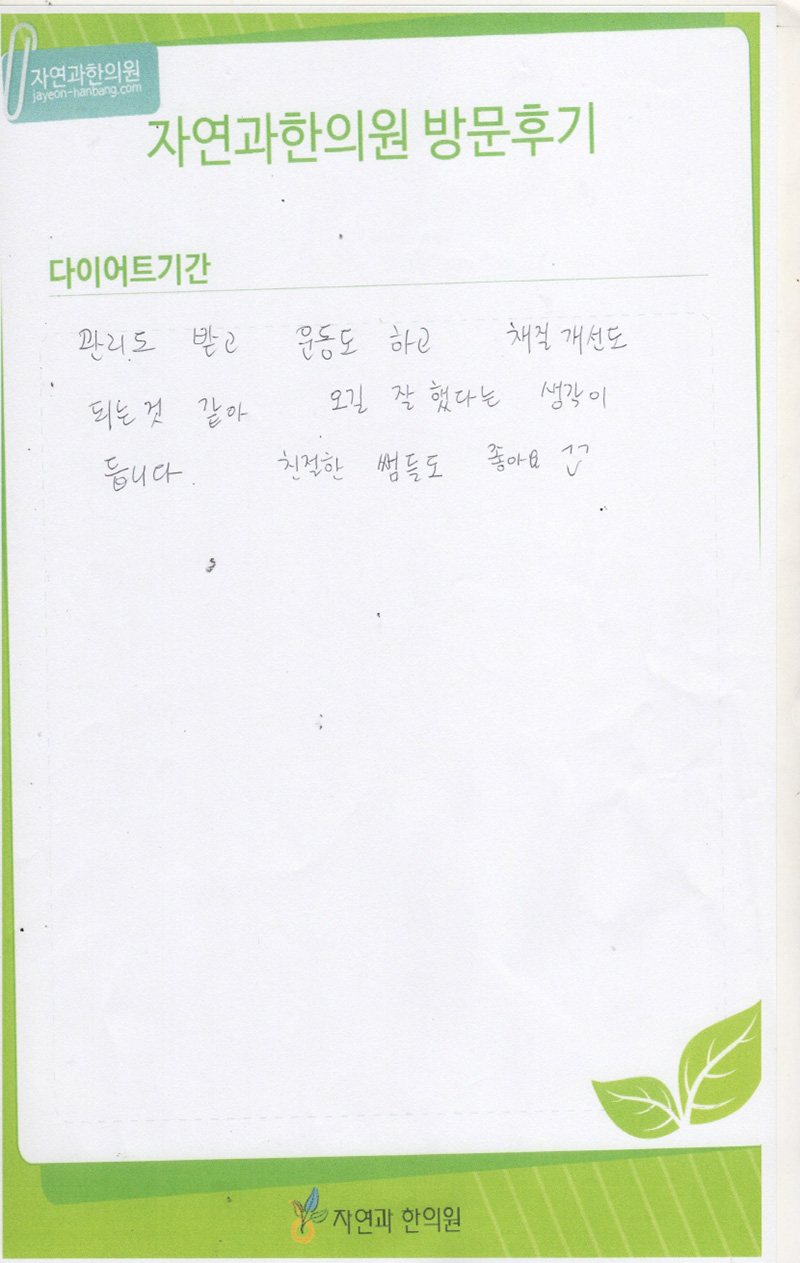 자연과한의원
jayeon-hanbang.com
자연과한의원 방문후기
다이어트기간
관리도 받고 운동도 하고 체질 개선도
되는것 같아 오길 잘 했다는 생각이
듭니다. 친절한 쌤들도 좋아요
자연과 한의원